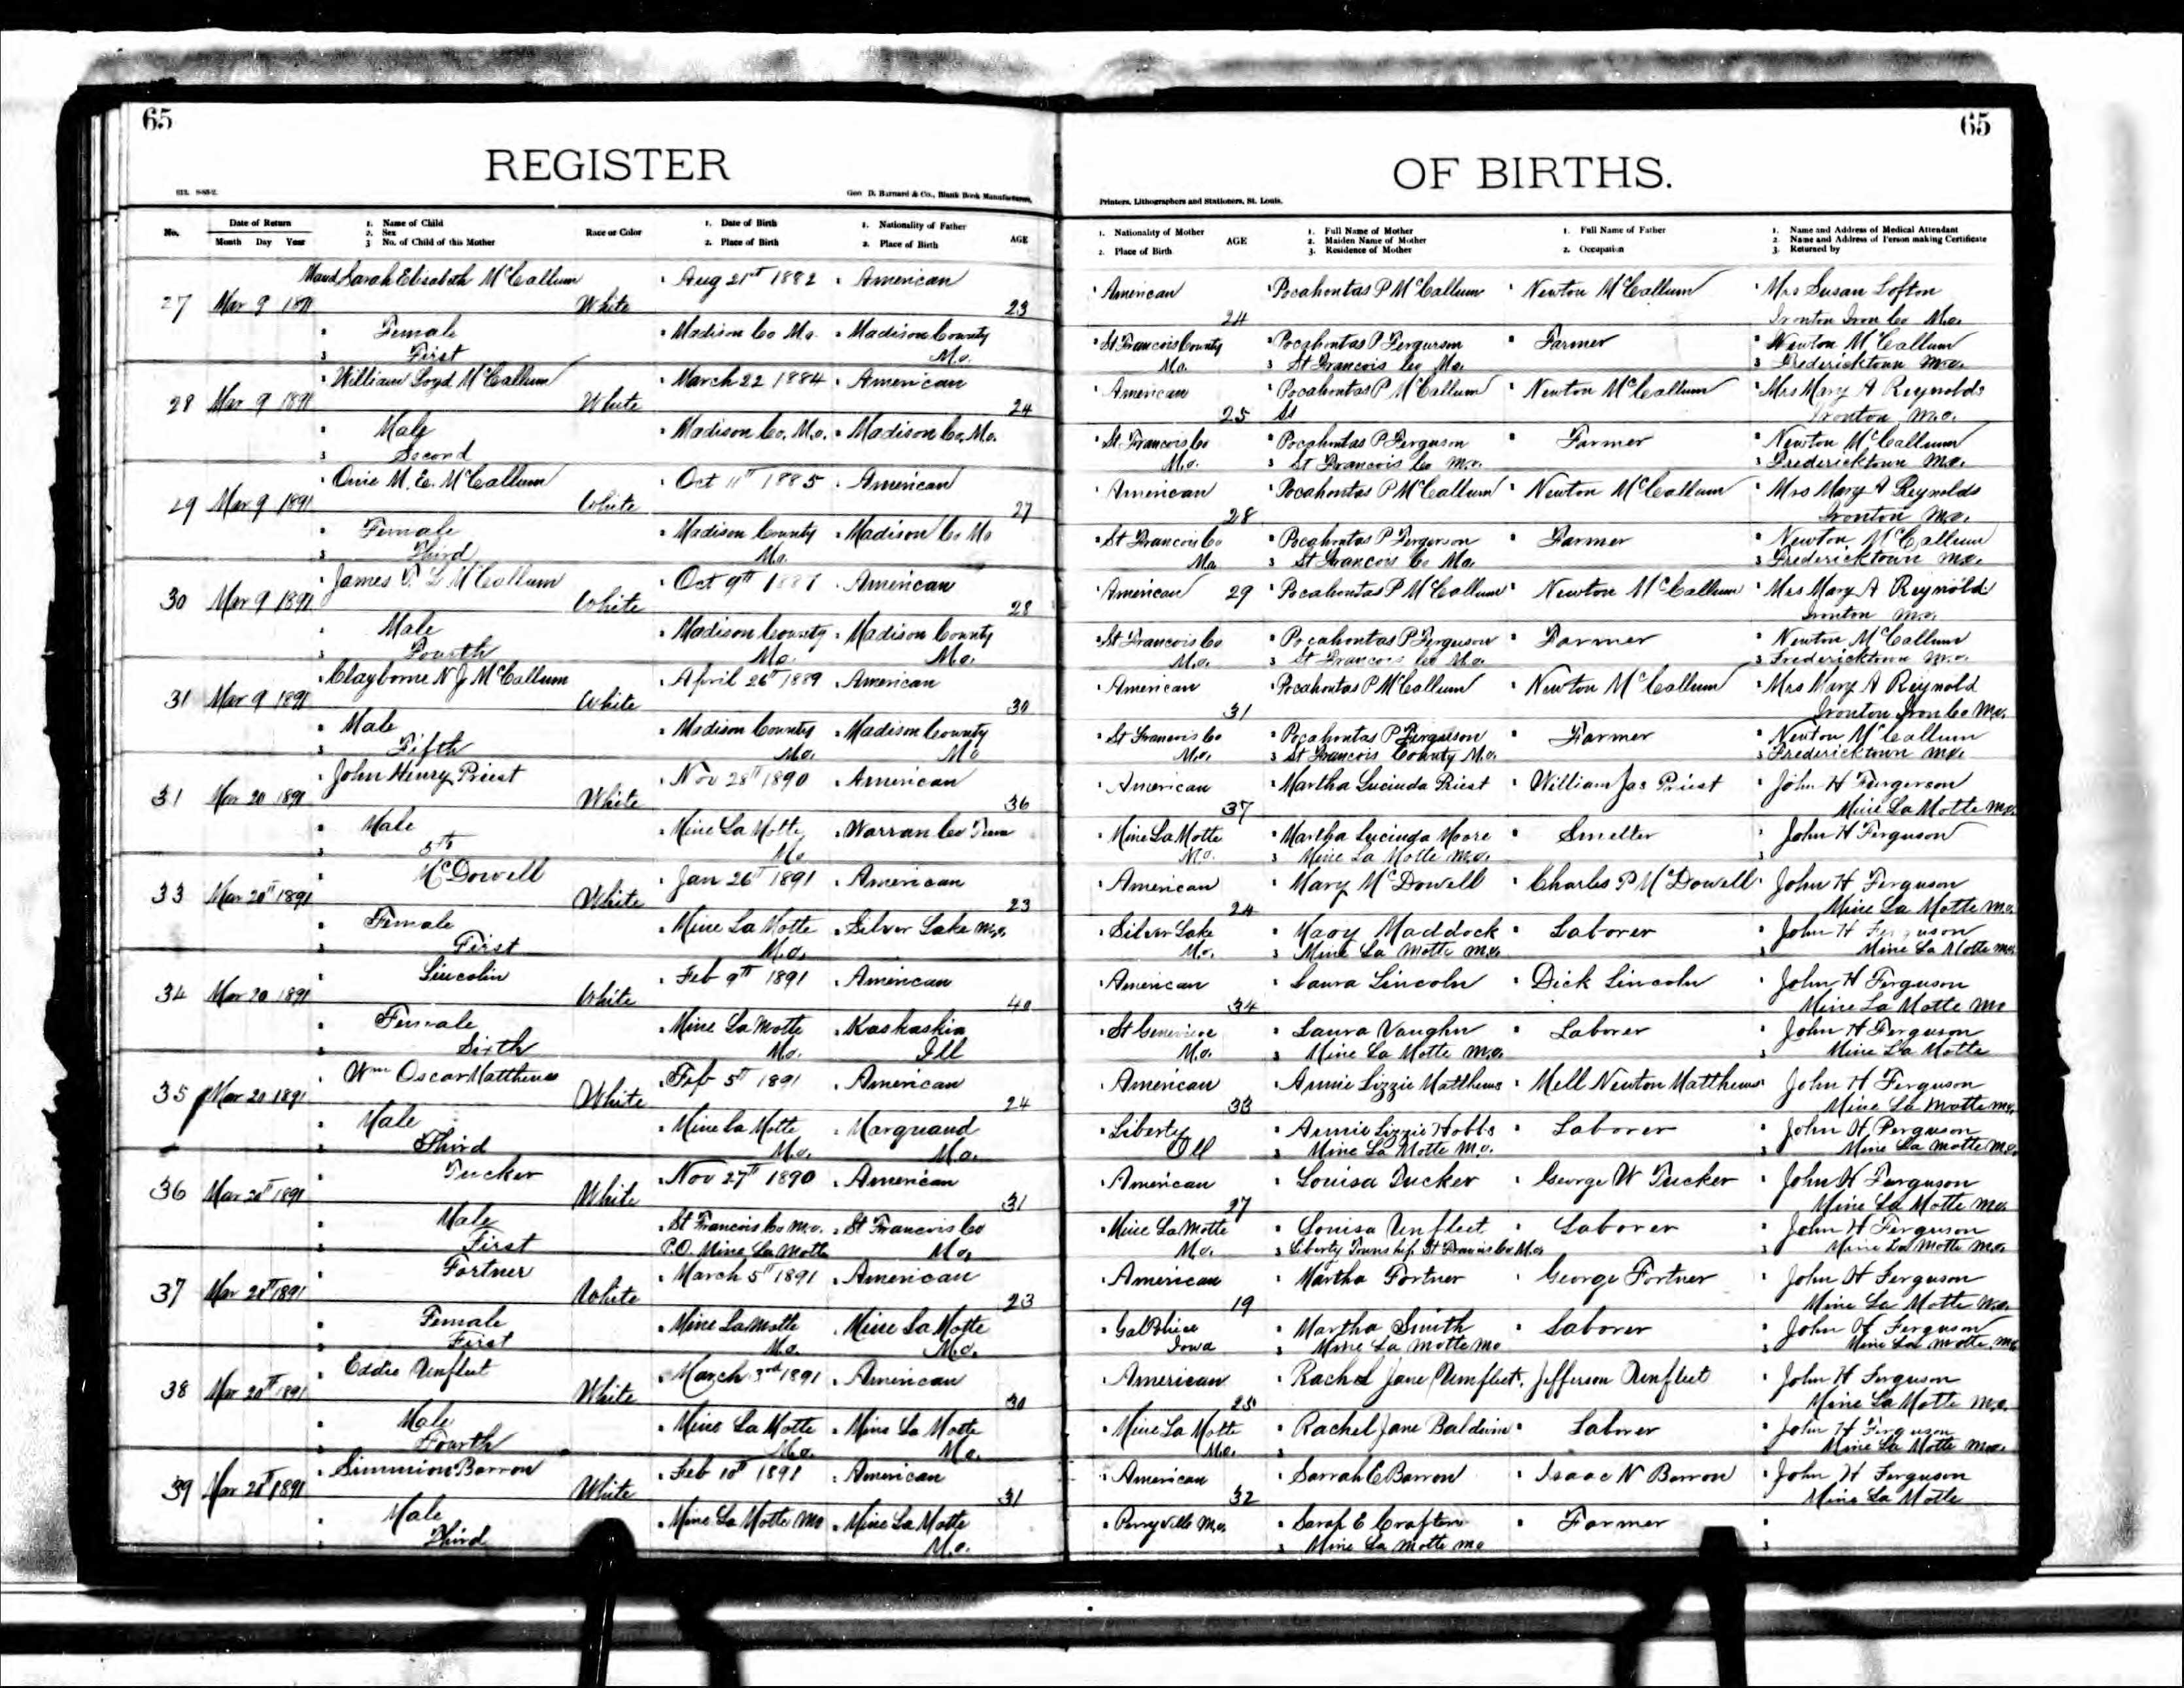 65
65
REGISTER
OF BIRTHS.
Geo. D. Barnard & Co., Blank Book Manufacturers,
Printers, Lithographers and Stationers, St. Louis.
No.
Date of Return
Month Day Year
1. Name of Child
2. Sex
3. No. of Child of this Mother
Race or Color
1. Date of Birth
2. Place of Birth
1. Nationality of Father
2. Place of Birth
AGE
1. Nationality of Mother
2. Place of Birth
AGE
1. Full Name of Mother
2. Maiden Name of Mother
3. Residence of Mother
1. Full Name of Father
2. Occupation
1. Name and Address of Medical Attendant
2. Name and Address of Person making Certificate
3. Returned by
Maud Sarah Elisabeth McCallum Aug 21st 1882 American
27 Mar 9 1891 White 23
Female Madison Co Mo. Madison County
First Mo.
American Pocahontas P McCallum Newton McCallum Mrs Susan Lofton
24 Ironton Iron Co Mo.
St Francois County Pocahontas P Fergurson Farmer Newton McCallum
Mo. 3 St Francois Co Mo. 3 Fredericktown Mo.
William Loyd McCallum March 22 1884 American
28 Mar 9 1891 White 24
Male Madison Co. Mo. Madison Co. Mo.
3 Second
American Pocahontas P McCallum Newton McCallum Mrs Mary A Reynolds
25 St Ironton Mo.
St. Francois Co Pocahontas P Ferguson Farmer Newton McCallum
Mo. 3 St Francois Co Mo. 3 Fredericktown Mo.
M. E. McCallum Oct 11th 1885 American
29 Mar 9 1891 White 27
Female Madison County Madison Co Mo
3 Third Mo.
American Pocahontas P McCallum Newton McCallum Mrs Mary A Reynolds
28 Ironton Mo.
St Francois Co Pocahontas P Fergerson Farmer Newton McCallum
Mo. 3 St Francois Co Mo. 3 Fredericktown Mo.
James L McCallum Oct 9th American
30 Mar 9 1891 White 28
Male Madison County Madison County
3 Fourth Mo. Mo.
American 29 Pocahontas P McCallum Newton McCallum Mrs Mary A Reynold
Ironton Mo.
St Francois Co Pocahontas P Ferguson Farmer Newton McCallum
Mo. 3 St Francois Co Mo. 3 Fredericktown Mo.
Clayborne N J McCallum April 26th 1889 American
31 Mar 9 1891 White 30
Male Madison County Madison County
3 Fifth Mo. Mo
American Pocahontas P McCallum Newton McCallum Mrs Mary A Reynold
31 Ironton Iron Co Mo.
St Francois Co Pocahontas P Ferguson Farmer Newton McCallum
Mo. 3 St Francois County Mo. 3 Fredericktown Mo.
John Henry Priest Nov 28th 1890 American
31 Mar 20 1891 White 36
Male Mine La Motte Warran Co Tenn
3 5th Mo
American Martha Lucinda Priest William Jas Priest John H Fergerson
37 Mine La Motte Mo.
Mine La Motte Martha Lucinda Moore Smelter John H Ferguson
Mo. 3 Mine La Motte Mo. 3
McDowell Jan 26th 1891 American
33 Mar 20th 1891 White 23
Female Mine La Motte Silver Lake Mo.
3 First Mo.
American Mary McDowell Charles P McDowell John H Ferguson
24 Mine La Motte Mo.
Silver Lake Mary Maddock Laborer John H Ferguson
Mo. 3 Mine La Motte Mo. 3 Mine La Motte Mo.
Lincolin Feb 9th 1891 American
34 Mar 20 1891 White 40
Female Mine La Motte Kaskaskia
3 Sixth Mo. Ill
American Laura Lincoln Dick Lincoln John H Ferguson
34 Mine La Motte Mo
St Genevieve Laura Vaughn Laborer John H Ferguson
Mo. 3 Mine La Motte Mo. 3 Mine La Motte
Wm Oscar Matthews Feb 5th 1891 American
35 Mar 20 1891 White 24
Male Mine La Motte Marquand
3 Third Mo. Mo.
American Annie Lizzie Matthews Mell Newton Matthews John H Ferguson
33 Mine La Motte Mo.
Liberty Annie Lizzie Hobbs Laborer John H Ferguson
Ill 3 Mine La Motte Mo. 3 Mine La Motte Mo.
Tucker Nov 27th 1890 American
36 Mar 20th 1891 White 31
Male St Francois Co Mo. St Francois Co
3 First P.O. Mine La Motte Mo.
American Louisa Tucker George W Tucker John H Ferguson
27 Mine La Motte Mo.
Mine La Motte Louisa Umfleet Laborer John H Ferguson
Mo. 3 Liberty Township St Francis Co Mo. 3 Mine La Motte Mo.
Fortner March 5th 1891 American
37 Mar 20th 1891 White 23
Female Mine La Motte Mine La Motte
3 First Mo. Mo.
American Martha Fortner George Fortner John H Ferguson
19 Mine La Motte Mo.
Martha Smith Laborer John H Ferguson
Iowa 3 Mine La Motte Mo 3 Mine La Motte Mo
Eddie Umfleet March 3rd 1891 American
38 Mar 20th 1891 White 30
Male Mine La Motte Mine La Motte
3 Fourth Mo. Mo.
American Rachel Jane Umfleet Jefferson Umfleet John H Ferguson
25 Mine La Motte Mo.
Mine La Motte Rachel Jane Baldwin Laborer John H Ferguson
Mo. 3 Mine La Motte Mo.
Simmion Barron Feb 10th 1891 American
39 Mar 20th 1891 White 31
Male Mine La Motte Mo Mine La Motte
3 Third Mo.
American Sarrah E Barron Isaac N Barron John H Ferguson
32 Mine La Motte
Perryville Mo. Sarah E Crafton Farmer
3 Mine La Motte Mo 3